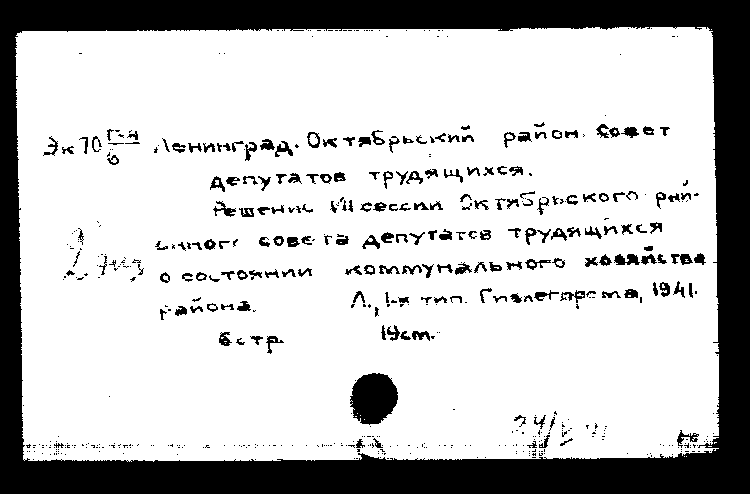 Эк70 Г-я/6 Ленинград. Октябрьский район. Совет
депутатов трудящихся.
Решение VII сессии Октябрьского рай-
онного совета депутатов трудящихся
2 экз
о состоянии коммунального хозяйства
района. Л., 1-я тип. Гизлегпрома, 1941.
6 стр. 19 cm.
24/